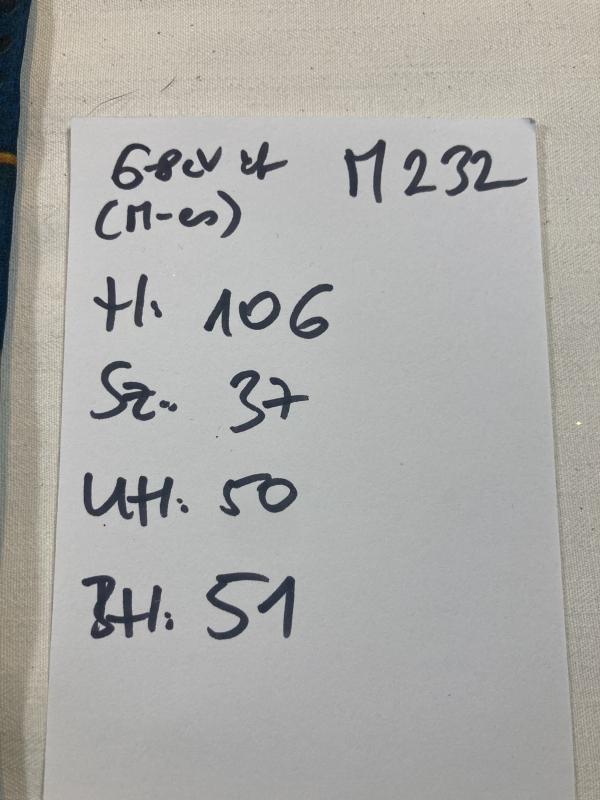 M232
(M-es)
H: 106
Sz: 37
UH: 50
BH: 51